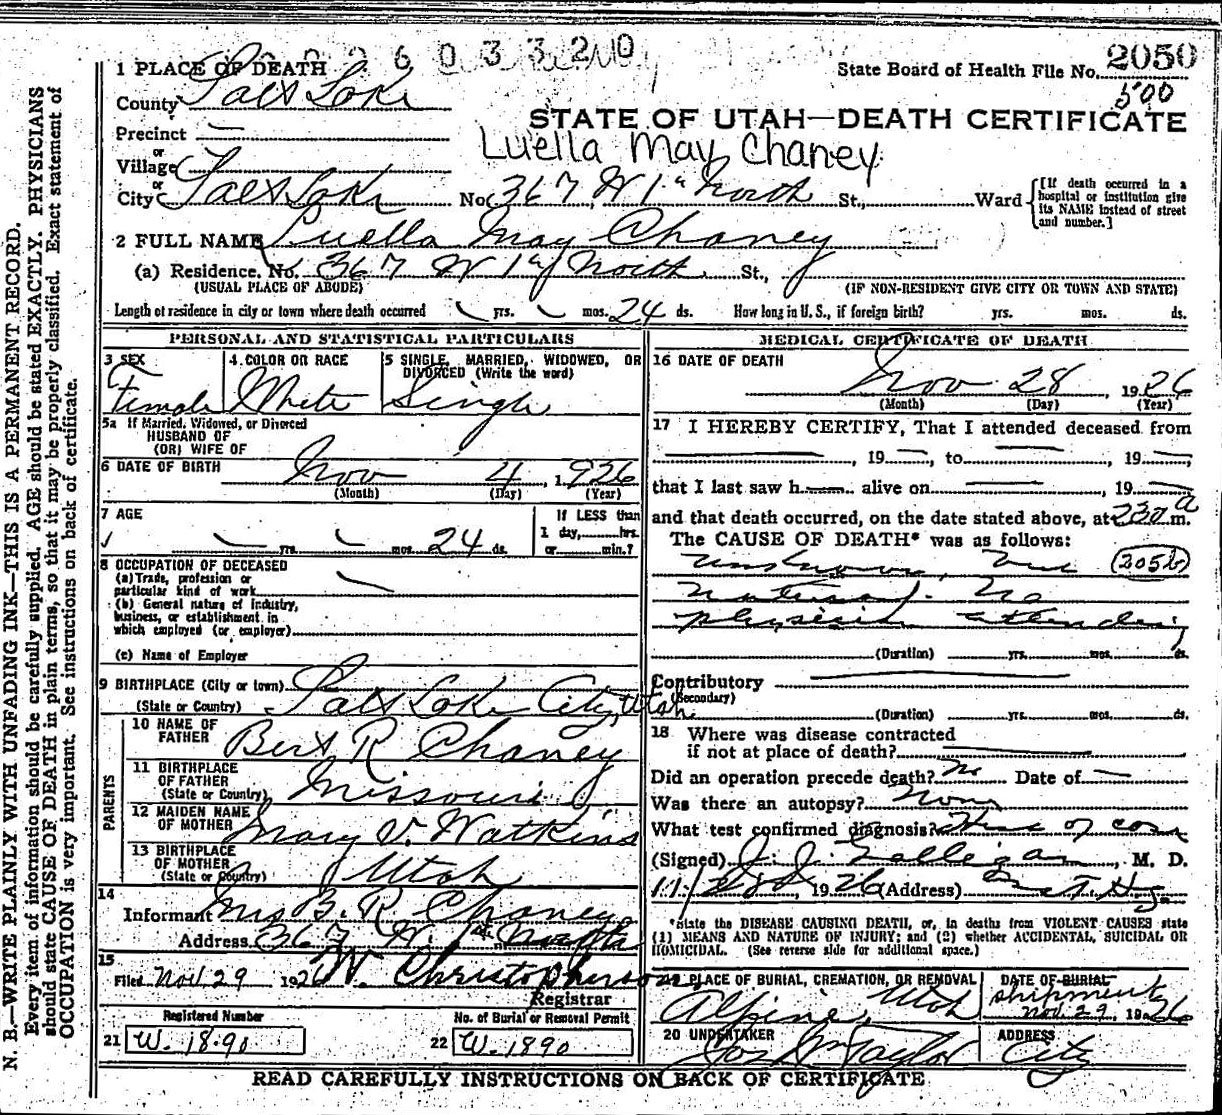 2 6 0 3 3 2 0
2050
1 PLACE OF DEATH
State Board of Health File No.
500
County Salt Lake
STATE OF UTAH—DEATH CERTIFICATE
Precinct —
Luella May Chaney
or
Village
or
City Salt Lake No. 367 W 1st North St., Ward
[If death occurred in a
hospital or institution give
its NAME instead of street
and number.]
2 FULL NAME Luella May Chaney
(a) Residence. No. 367 W 1st North St.,
(USUAL PLACE OF ABODE) (IF NON-RESIDENT GIVE CITY OR TOWN AND STATE)
Length of residence in city or town where death occurred yrs. mos. 24 ds. How long in U. S., if foreign birth? yrs. mos. ds.
PERSONAL AND STATISTICAL PARTICULARS
3 SEX
Female
4 COLOR OR RACE
White
5 SINGLE, MARRIED, WIDOWED, OR
DIVORCED (Write the word)
Single
5a If Married, Widowed, or Divorced
HUSBAND OF
(OR) WIFE OF
6 DATE OF BIRTH Nov 4, 1926
(Month) (Day) (Year)
7 AGE
yrs. mos. 24 ds.
If LESS than
1 day, hrs.
or min.?
8 OCCUPATION OF DECEASED
(a) Trade, profession or
particular kind of work
(b) General nature of industry,
business, or establishment in
which employed (or employer)
(c) Name of Employer
9 BIRTHPLACE (City or town)
(State or Country) Salt Lake City, Utah
PARENTS
10 NAME OF
FATHER Bert R Chaney
11 BIRTHPLACE
OF FATHER
(State or Country) Missouri
12 MAIDEN NAME
OF MOTHER Mary V. Watkins
13 BIRTHPLACE
OF MOTHER
(State or Country) Utah
14
Informant Mrs B. R. Chaney
Address 367 W. 1st North
15
Filed Nov 29 1926 W. Christopherson
Registrar
Registered Number
21 W. 1890
No. of Burial or Removal Permit
22 W. 1890
MEDICAL CERTIFICATE OF DEATH
16 DATE OF DEATH
Nov 28, 1926
(Month) (Day) (Year)
17 I HEREBY CERTIFY, That I attended deceased from
, 19 , to , 19 ,
that I last saw h alive on , 19
and that death occurred, on the date stated above, at 230 a m.
The CAUSE OF DEATH* was as follows:
Unknown, but (205b)
natural. No
physician attending
(Duration) yrs. mos. ds.
Contributory
(Secondary)
(Duration) yrs. mos. ds.
18 Where was disease contracted
if not at place of death?
Did an operation precede death? No Date of —
Was there an autopsy? None
What test confirmed diagnosis? of
(Signed) J. J. Galligan, M. D.
11/28, 1926 (Address)
*State the DISEASE CAUSING DEATH, or, in deaths from VIOLENT CAUSES state
(1) MEANS AND NATURE OF INJURY; and (2) whether ACCIDENTAL, SUICIDAL OR
HOMICIDAL. (See reverse side for additional space.)
PLACE OF BURIAL, CREMATION, OR REMOVAL
Alpine, Utah
DATE OF BURIAL
Shipment
Nov. 29, 1926
20 UNDERTAKER
Jos Wm Taylor
ADDRESS
City
READ CAREFULLY INSTRUCTIONS ON BACK OF CERTIFICATE
N. B.—WRITE PLAINLY WITH UNFADING INK—THIS IS A PERMANENT RECORD.
Every item of information should be carefully supplied. AGE should be stated EXACTLY. PHYSICIANS
should state CAUSE OF DEATH in plain terms, so that it may be properly classified. Exact statement of
OCCUPATION is very important. See instructions on back of certificate.